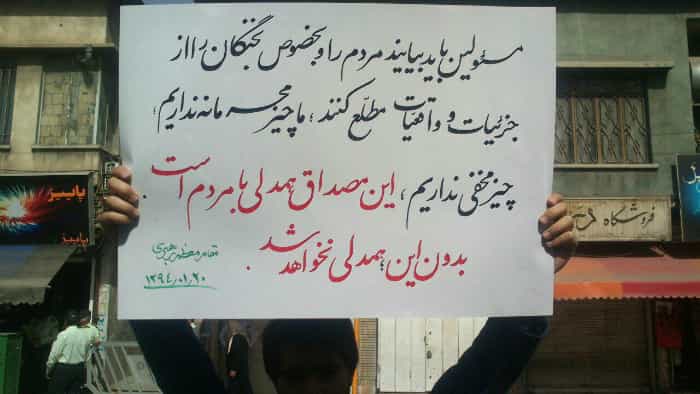 مسئولین باید بیایند مردم را و بخصوص نخبگان را از
جزئیات و واقعیات مطلّع کنند؛ ما چیز محرمانه نداریم؛
چیز مخفی نداریم؛ این مصداق همدلی با مردم است.
بدون این؛ همدلی نخواهد شد.
مقام معظم رهبری
۱۳۹۴٫۰۱٫۲۰
پاییز
پاییز
فروشگاه